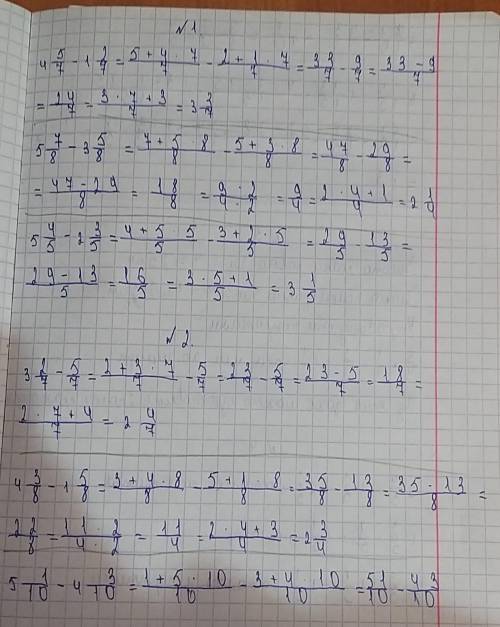 №1.
4 5/7 - 1 2/7 = (5+4·7)/7 - (2+1·7)/7 = 33/7 - 9/7 = (33-9)/7
= 24/7 = (3·7+3)/7 = 3 3/7
5 7/8 - 3 5/8 = (7+5·8)/8 - (5+3·8)/8 = 47/8 - 29/8 =
= (47-29)/8 = 18/8 = (9·2)/(4·2) = 9/4 = (2·4+1)/4 = 2 1/4
5 4/5 - 2 3/5 = (4+5·5)/5 - (3+2·5)/5 = 29/5 - 13/5 =
(29-13)/5 = 16/5 = (3·5+1)/5 = 3 1/5
№2.
3 2/7 - 5/7 = (2+3·7)/7 - 5/7 = 23/7 - 5/7 = (23-5)/7 = 18/7 =
(2·7+4)/7 = 2 4/7
4 3/8 - 1 5/8 = (3+4·8)/8 - (5+1·8)/8 = 35/8 - 13/8 = (35-13)/8 =
22/8 = (11·2)/(4·2) = 11/4 = (2·4+3)/4 = 2 3/4
5 1/10 - 4 3/10 = (1+5·10)/10 - (3+4·10)/10 = 51/10 - 43/10